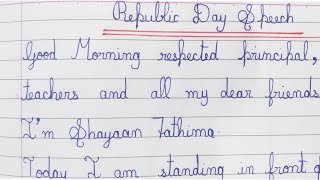 Republic Day Speech
Good Morning respected principal,
teachers and all my dear friends
I'm Shayaan Fathima
Today I am standing in front of